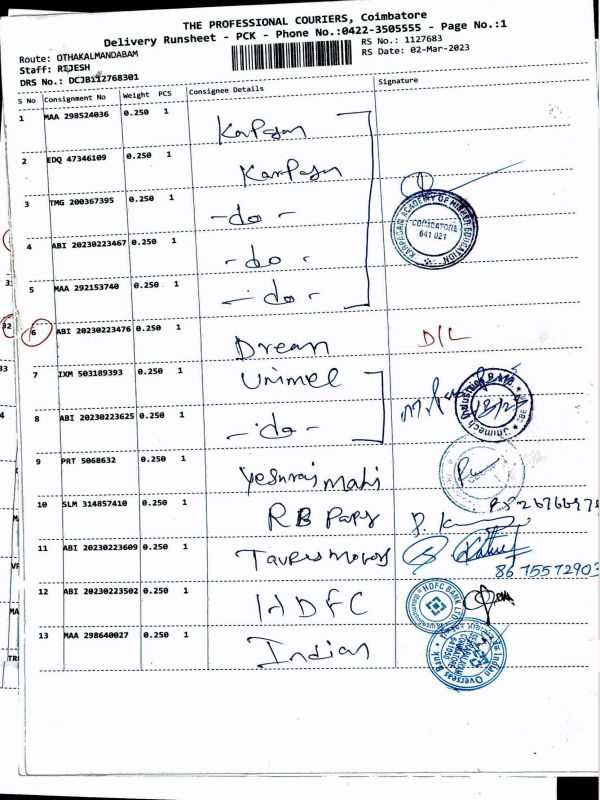 THE PROFESSIONAL COURIERS, Coimbatore
Delivery Runsheet - PCK - Phone No.:0422-3505555 - Page No.:1
Route: OTHAKALMANDABAM
RS No.: 1127683
Staff: RIJESH
RS Date: 02-Mar-2023
DRS No.: DCJB112768301
S No Consignment No Weight PCS Consignee Details Signature
1 MAA 298524036 0.250 1 Karpagam
2 EDQ 47346109 0.250 1 Karpagam
3 TMG 200367395 0.250 1 -do-
KARPAGAM ACADEMY OF HIGHER EDUCATION
COIMBATORE
641 021
4 ABI 20230223467 0.250 1 -do-
5 MAA 292153740 0.250 1 -do-
6 ABI 20230223476 0.250 1 Dream D/L
7 IXM 503189393 0.250 1 Unimel
8 ABI 20230223625 0.250 1 -do-
9 PRT 5068632 0.250 1 Yeshraj Mahi
10 SLM 314857410 0.250 1 RB Papers
11 ABI 20230223609 0.250 1 Taurus Motors
8675572903
12 ABI 20230223502 0.250 1 HDFC
HDFC BANK LTD
13 MAA 298640027 0.250 1 Indian
Indian Overseas Bank